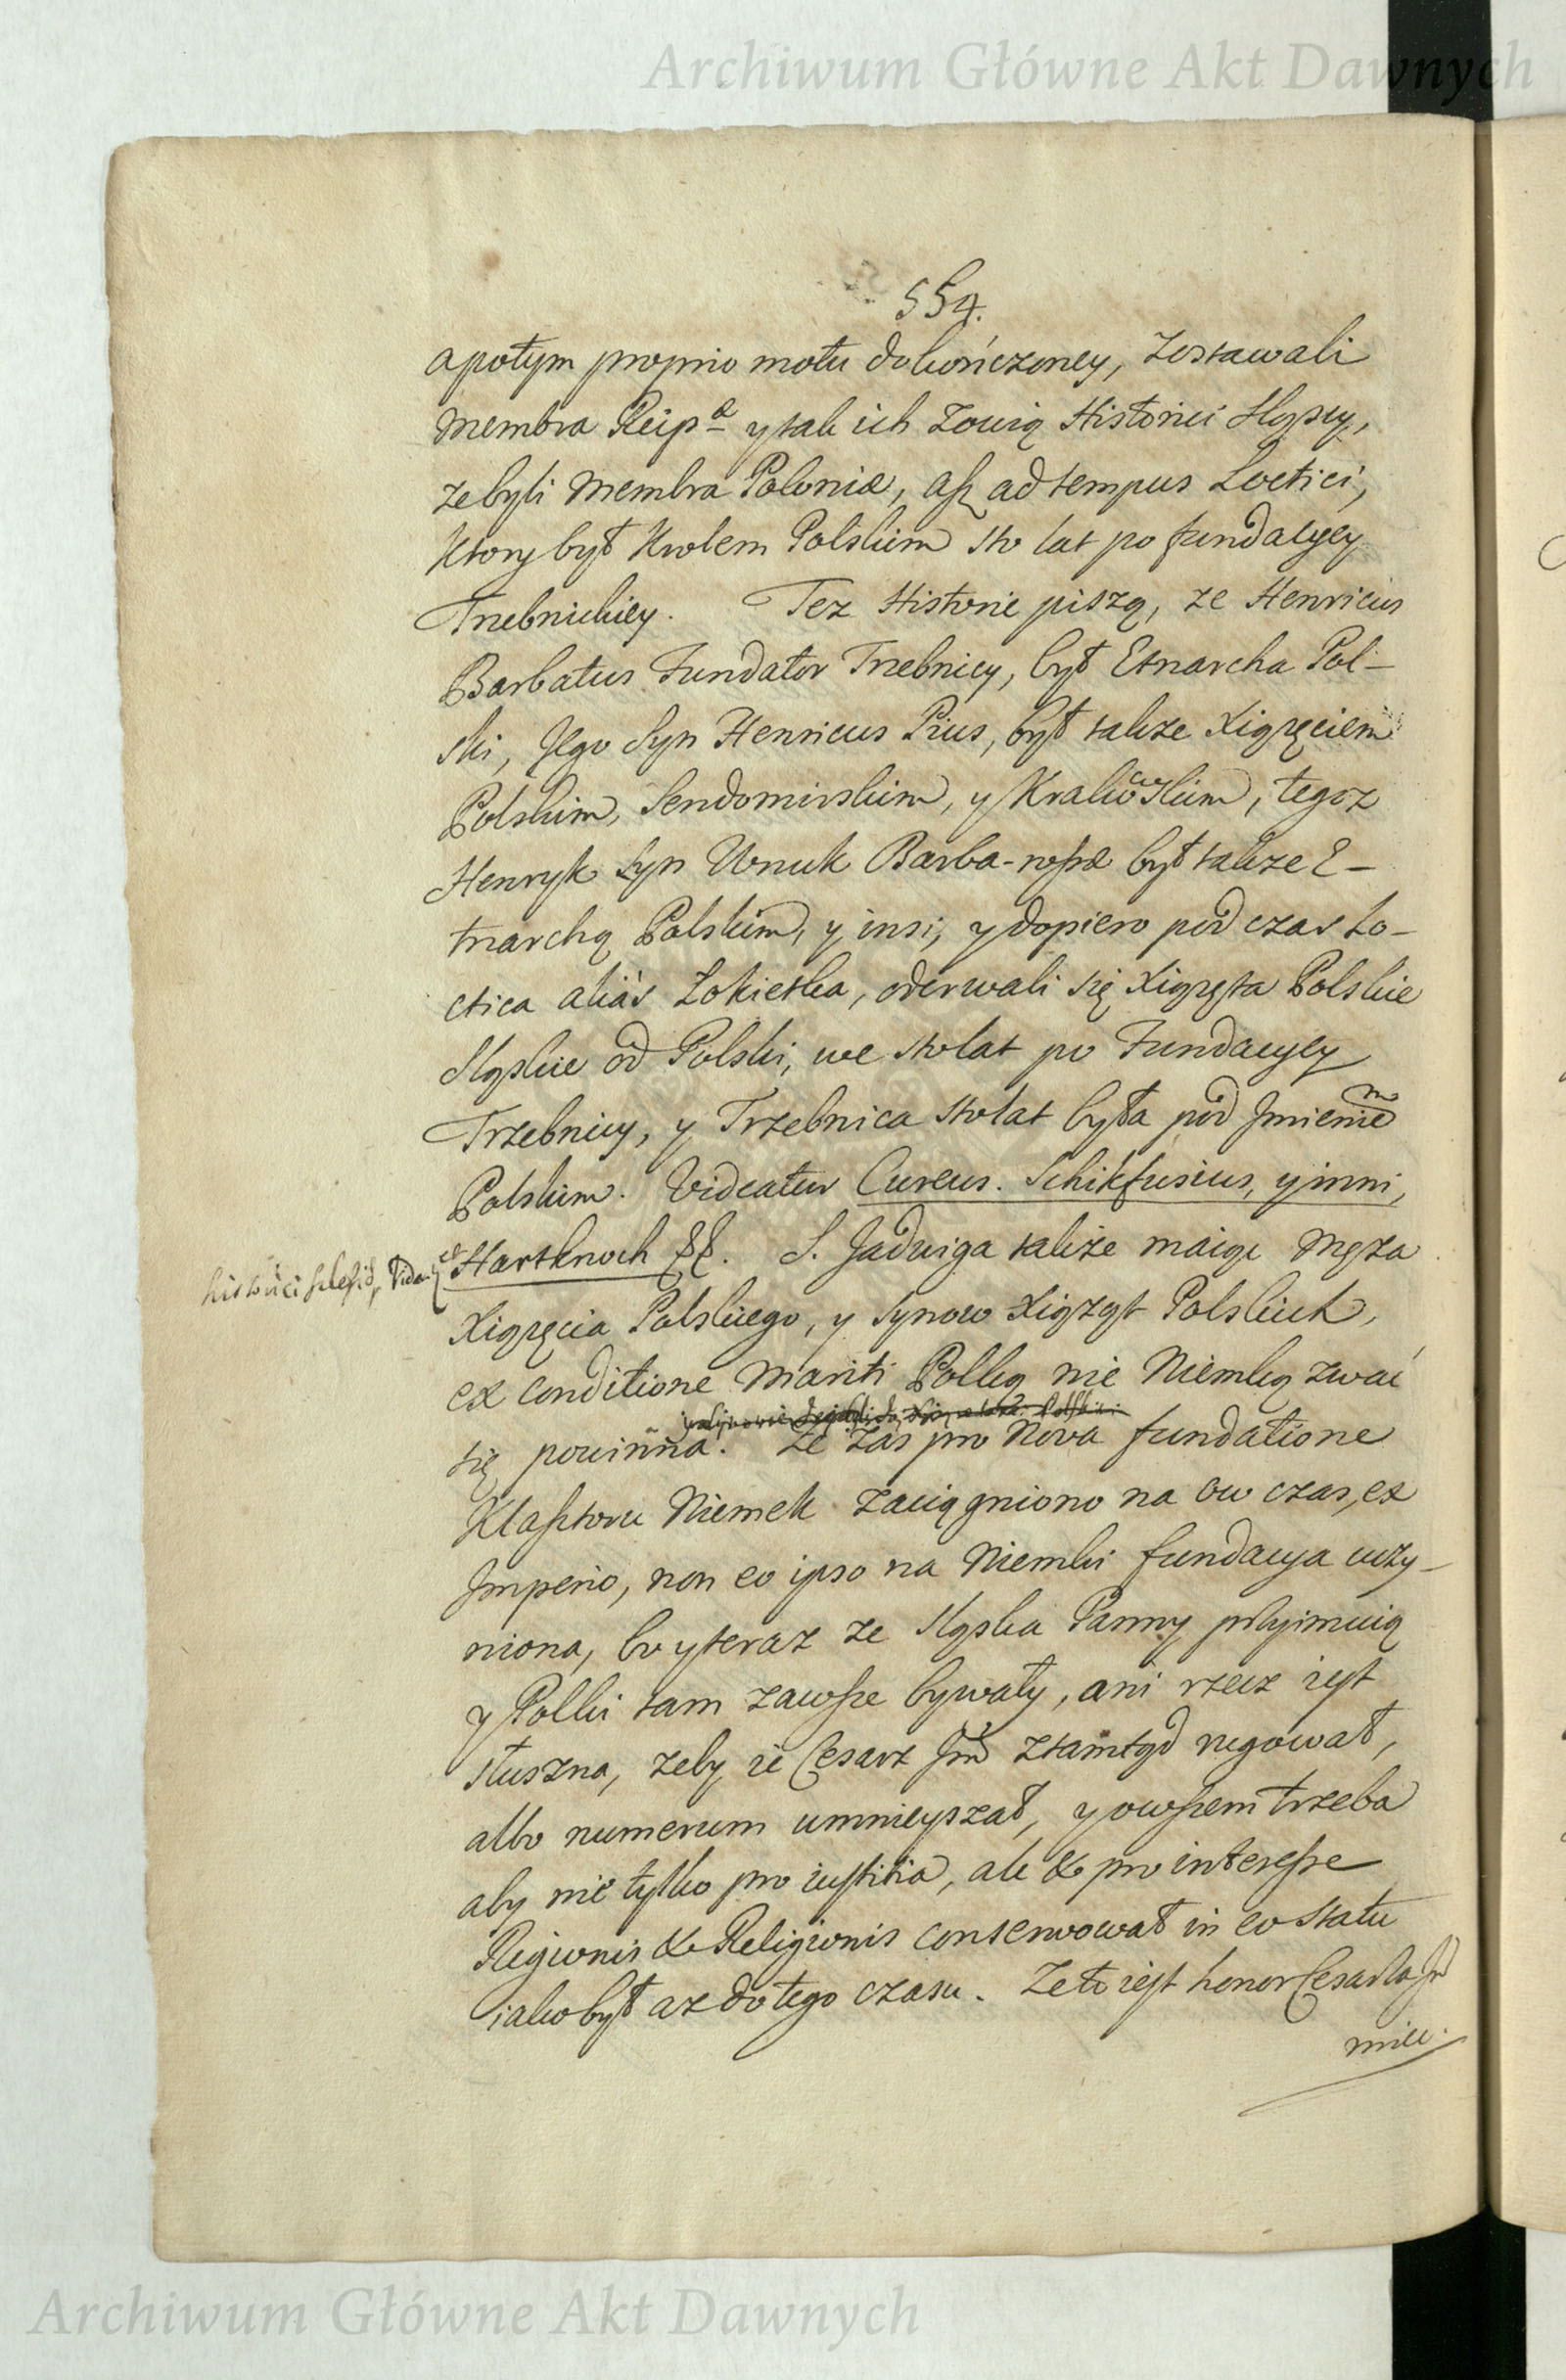 Archiwum Główne Akt Dawnych
554.
a potym proprio motu dokończoney, zostawali
membra Reip^æ y tak ich zowią Historici Sląscy,
ze byli membra Poloniæ, asz ad tempus Loctici,
ktory był Krolem Polskim sto lat po fundacyey
Trzebnickiey. Tez Historie piszą, ze Henricus
Barbatus Fundator Trzebnicy, był Etnarcha Pol-
ski, Jego Syn Henricus Pius, był takze Xiązęciem
Polskim, Sendomirskim, y Krakowskim, tegoz
Henryk Syn Wnuk Barba-rossæ był takze E-
tnarchą Polskim, y insi, y dopiero pod czas Lo-
ctica aliàs Łokietka, oderwali się Xiązęta Polskie
Sląskie od Polski, we sto lat po Fundacyey
Trzebnicy, y Trzebnica sto lat była pod Jmieniem
Polskim. Videatur Cureus. Schikfusius, y inni,
historici Silesiæ, Videatur et Hartknoch ff. S. Jadwiga takze maiąc Męza
Xiązęcia Polskiego, y synow Xiąząt Polskich,
ex conditione Mariti Polką nie Niemką zwać
się powinna. Ze zas pro Nova fundatione
Klasztoru Niemek zaciągniono na ow czas, ex
Jmperio, non eo ipso na Niemki fundacya uczy-
niona, bo y teraz ze Sląska Panny przyimuią
y Polki tam zawsze bywały, ani rzecz iest
słuszna, zeby ie Cesarz Jm̃ ztamtąd rugował,
albo numerum umnieyszał, y owszem trzeba
aby nie tylko pro iustitia, ale & pro interesse
Regionis & Religionis conserwował in eo statu
iako był az do tego czasu. Ze to iest honor Cesarza Jm̃
Archiwum Główne Akt Dawnych